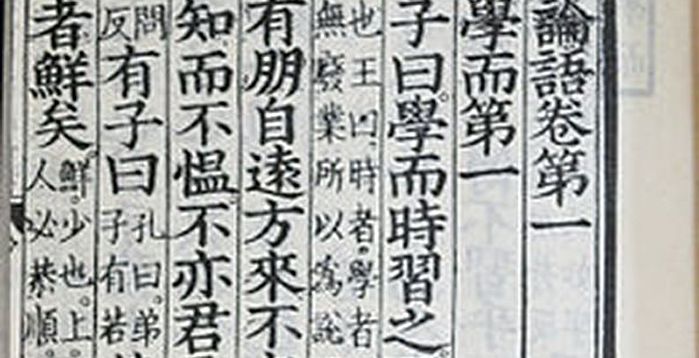 論語卷第一
學而第一
子曰。學而時習之
也王曰。時者。學者
無廢業所以爲說
有朋自遠方來不
知而不愠。不亦君
問
反
有子曰
孔曰。弟
子有若
者鮮矣。
鮮。少也。上。
人必恭順。